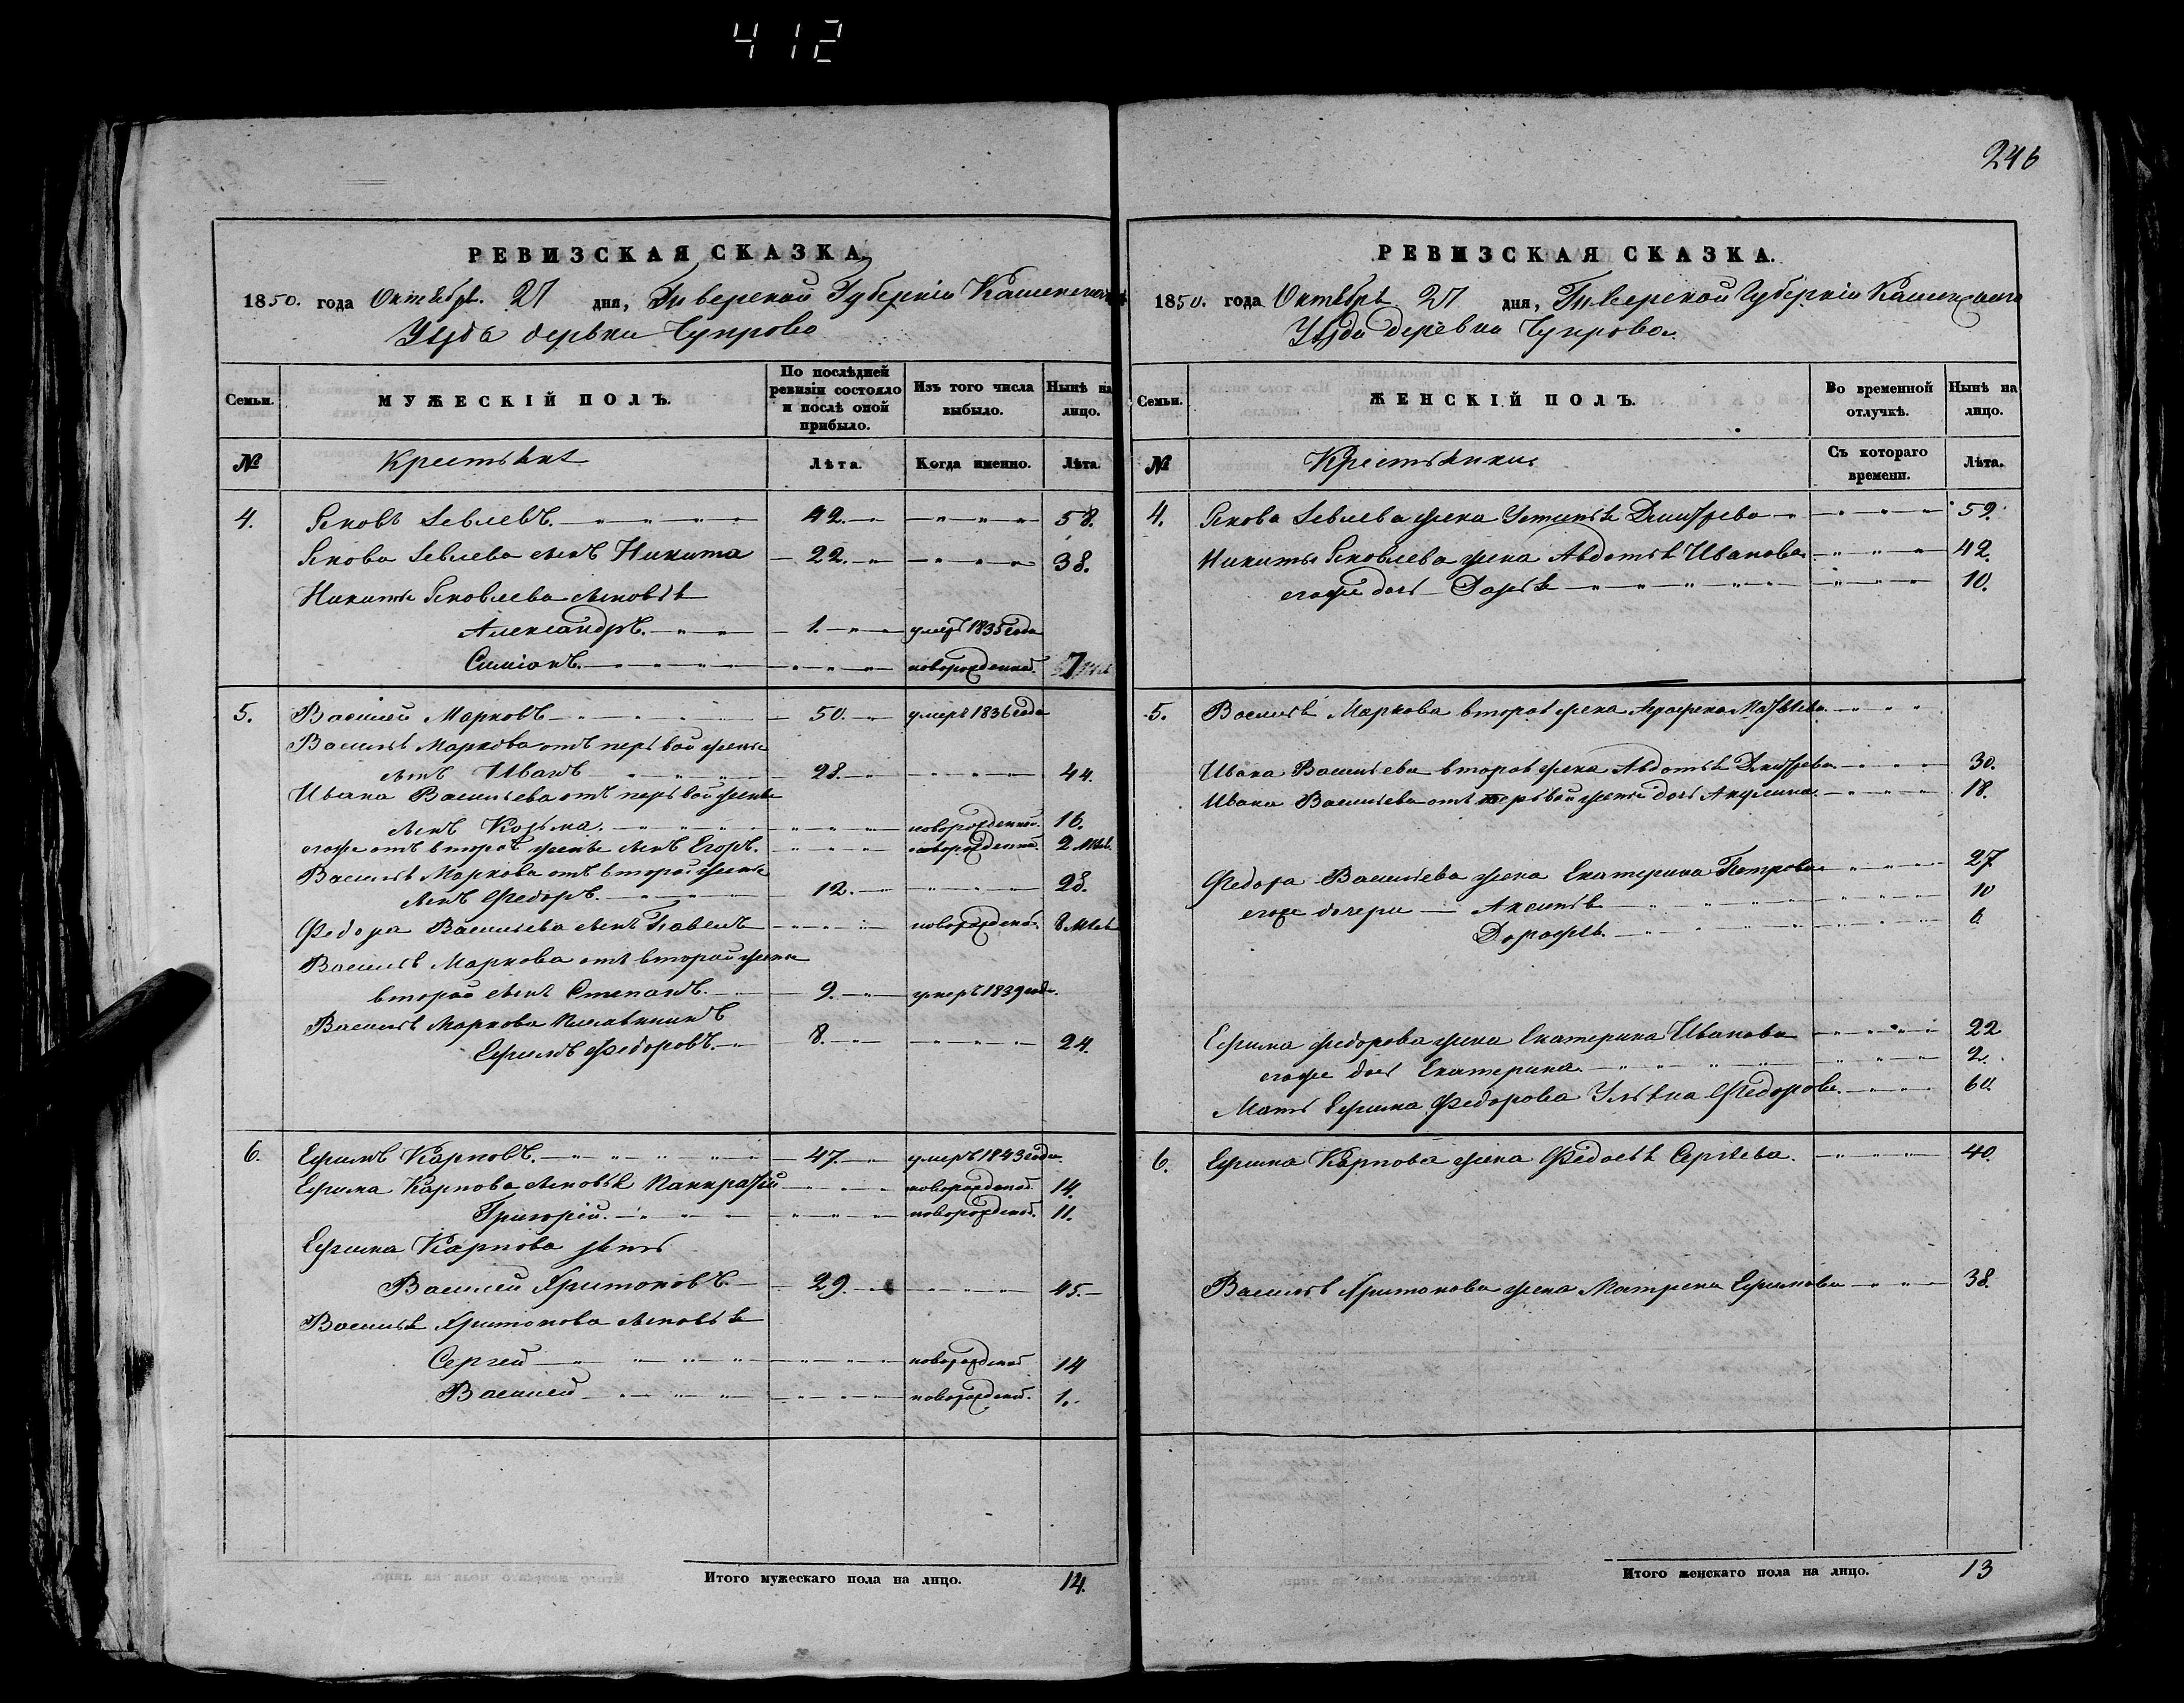 412
246
РЕВИЗСКАЯ СКАЗКА.
1850. года Октября. 27 дня, Тверской Губерніи Кашинскаго
Уезда деревни Чупрово
Семьи.
МУЖЕСКІЙ ПОЛЪ.
По послѣдней ревизіи состояло и послѣ оной прибыло.
Изъ того числа выбыло.
Нынѣ на лицо.
№ Крестьяне Лѣта. Когда именно. Лѣта.
4. Яковъ Іевлевъ. 42. 58.
Якова Іевлева сынъ Никита 22. 38.
Никиты Яковлева сыновья
Александръ. 1. умеръ 1835 года
Симіонъ. новорожденной. 7
5. Василей Марковъ 50. умеръ 1836 года
Василья Маркова отъ первой жены
сынъ Иванъ 28. 44.
Ивана Васильева отъ первой жены
сынъ Козьма. новорожденной. 16.
егоже отъ второй жены сынъ Егоръ. новорожденной. 2 мѣс.
Василья Маркова отъ второй жены
сынъ Федоръ. 12. 28.
Федора Васильева сынъ Павелъ новорожденой. 8 мѣс
Василья Маркова отъ второй жены
второй сынъ Степанъ. 9. умеръ 1839 года.
Василья Маркова племянникъ
Ефимъ Федоровъ. 8. 24.
6. Ефимъ Карповъ. 47. умеръ 1843 года.
Ефима Карпова сыновья Панкратій новорожденой 14.
Григорій. новорожденой. 11.
Ефима Карпова зять
Василей Харитоновъ. 29. 45.
Василья Харитонова сыновья
Сергей новорожденой 14
Василей новорожденой. 1.
Итого мужескаго пола на лицо. 14.
РЕВИЗСКАЯ СКАЗКА.
1850. года Октября 27 дня, Тверской Губерніи Кашинскаго
Уезда деревни Чупрово.
Семьи.
ЖЕНСКІЙ ПОЛЪ.
Во временной отлучкѣ.
Нынѣ на лицо.
№ Крестьянки Съ котораго времени. Лѣта.
4. Якова Іевлева жена Дмитрева 59.
Никиты Яковлева жена Авдотья Иванова 42.
егоже дочь Дарья 10.
5. Василья Маркова вторая жена Аграфена Матвѣева
Ивана Васильева вторая жена Авдотья Дмитрева 30.
Ивана Васильева отъ первой жены дочь Акулина. 18.
Федора Васильева жена Екатерина Петрова 27
егоже дочери Аксинья 10
Дорофья. 6
Ефима Федорова жена Екатерина Иванова 22
егоже дочь Екатерина. 2.
Мать Ефима Федорова Ульяна Федорова. 60.
6. Ефима Карпова жена Федосья Сергѣева. 40.
Василья Харитонова жена Матрена Ефимова 38.
Итого женскаго пола на лицо. 13